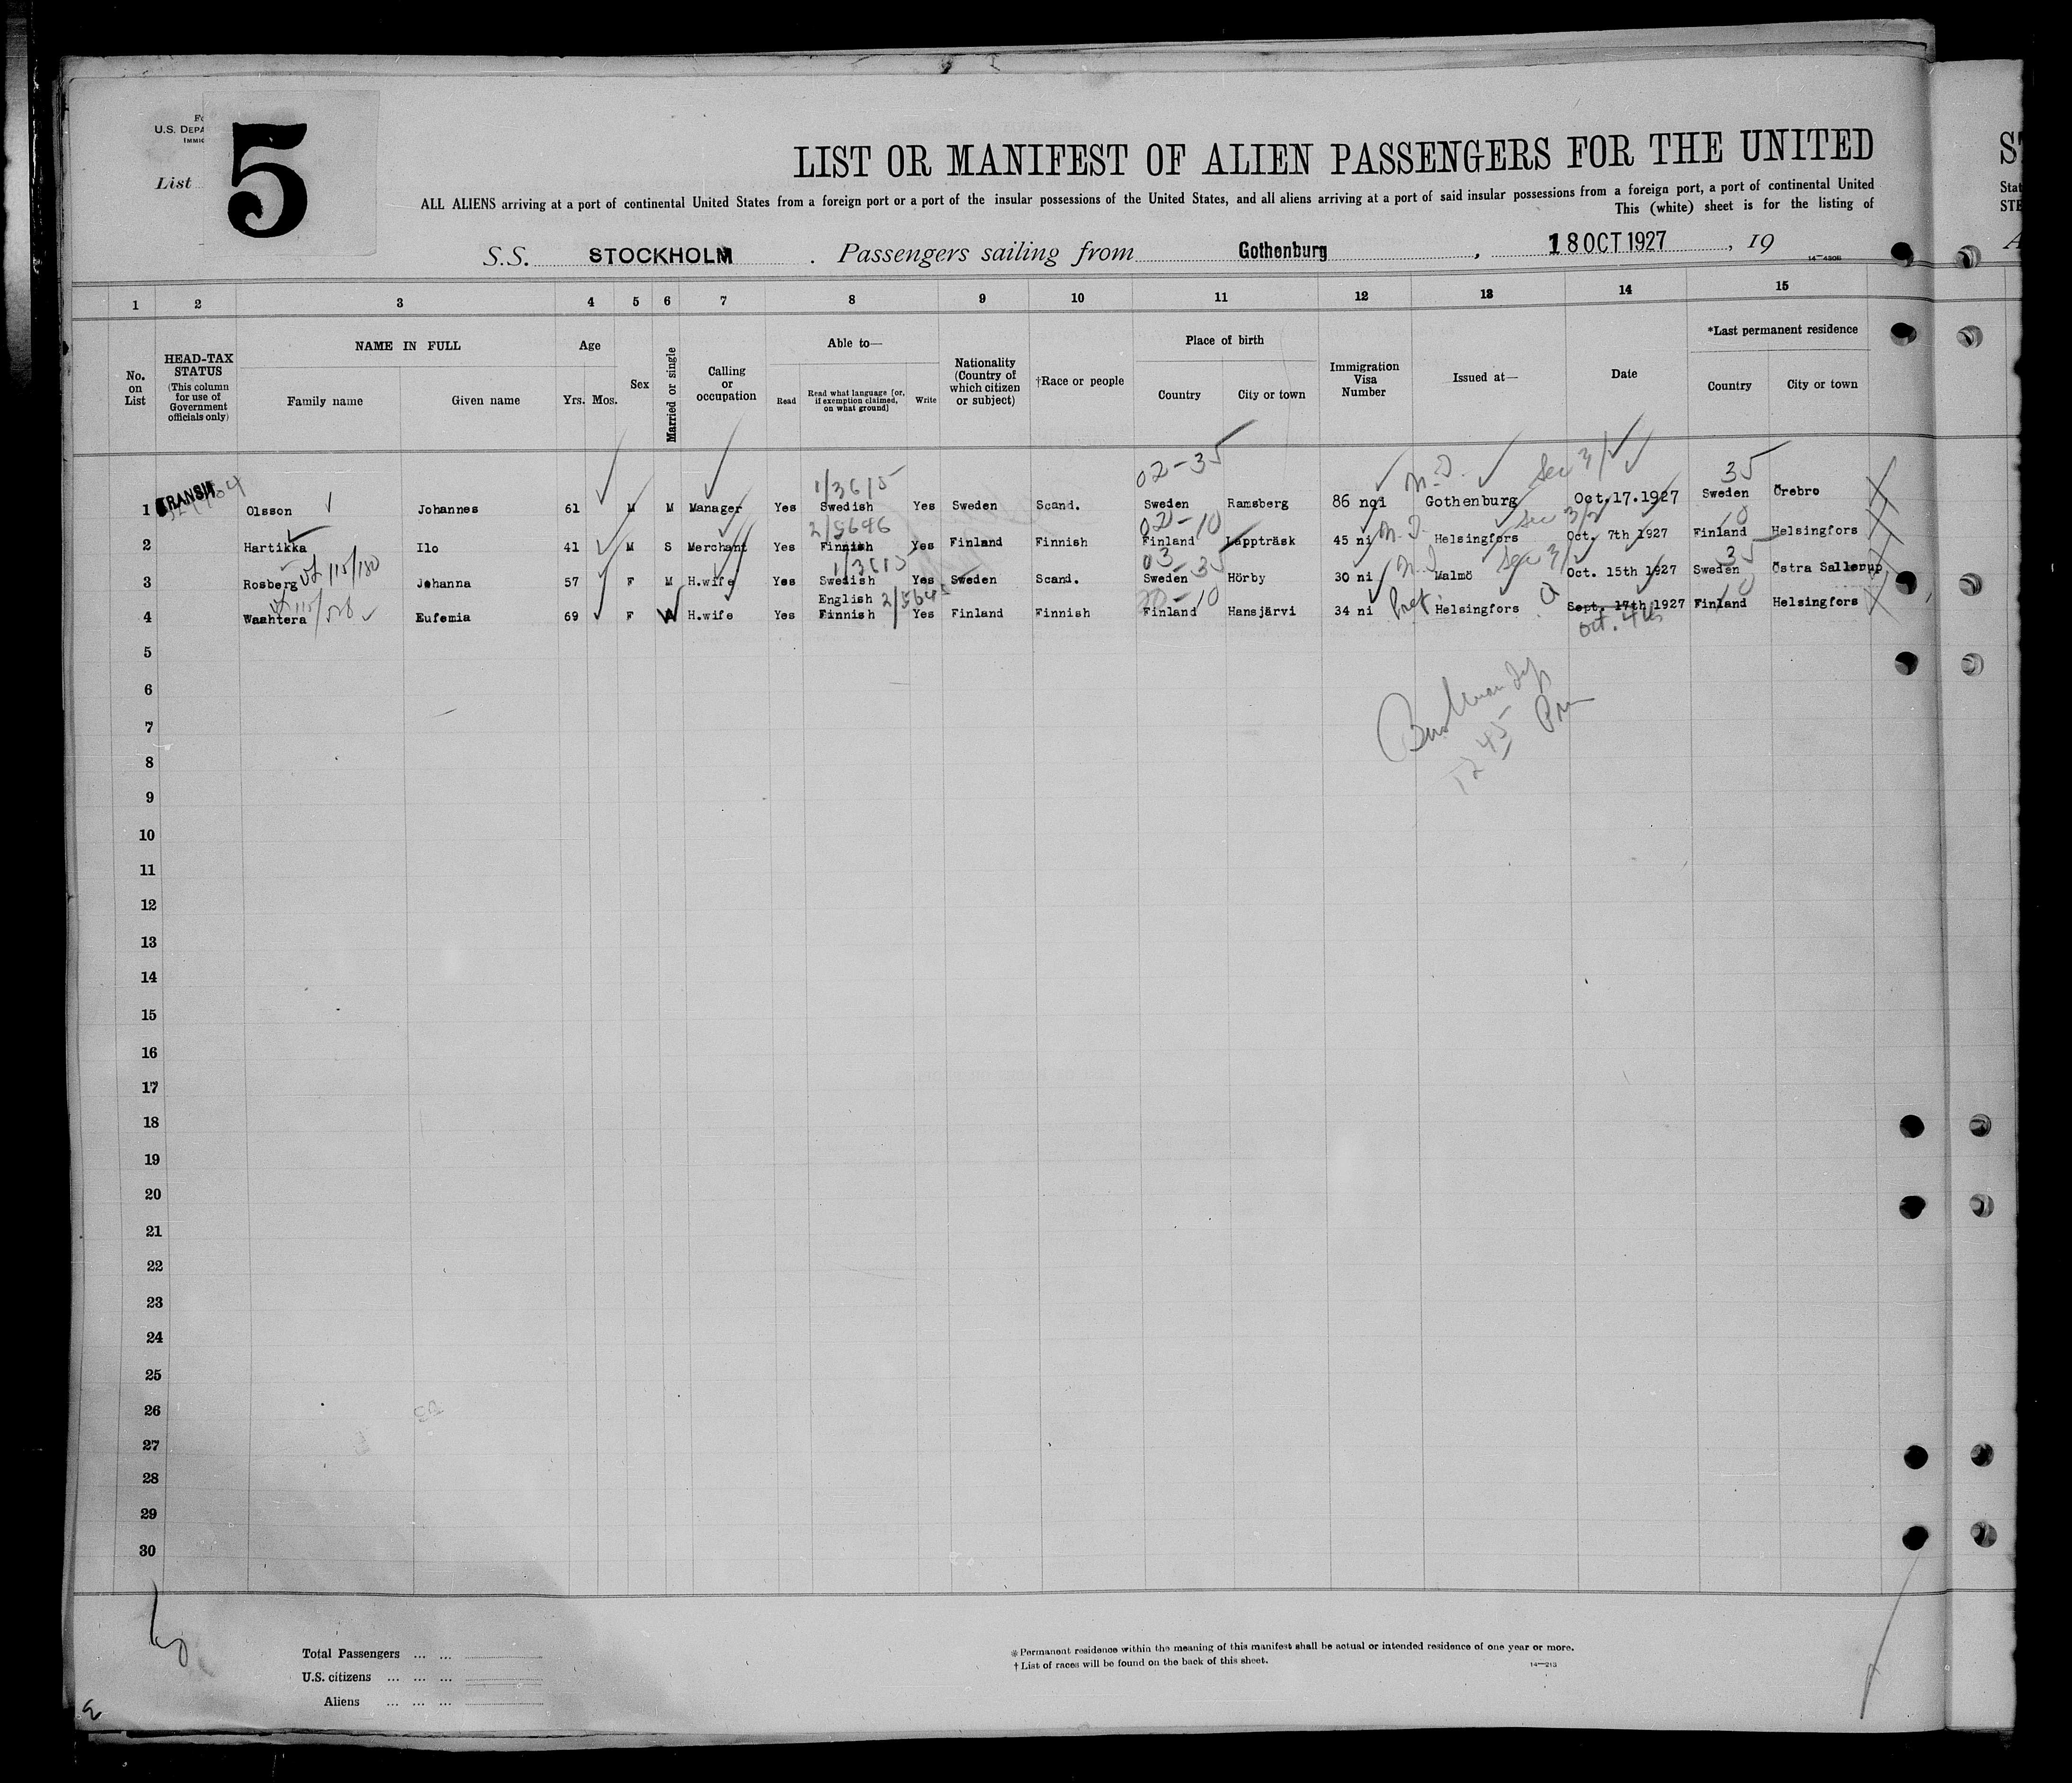 5
U.S. DEPA
IMMIG
List
LIST OR MANIFEST OF ALIEN PASSENGERS FOR THE UNITED
ALL ALIENS arriving at a port of continental United States from a foreign port or a port of the insular possessions of the United States, and all aliens arriving at a port of said insular possessions from a foreign port, a port of continental United
This (white) sheet is for the listing of
S.S. STOCKHOLM . Passengers sailing from Gothenburg , 18 OCT 1927 , 19
1 2 3 4 5 6 7 8 9 10 11 12 13 14 15
No. on List
HEAD-TAX STATUS (This column for use of Government officials only)
NAME IN FULL
Family name Given name
Age
Yrs. Mos.
Sex
Married or single
Calling or occupation
Able to—
Read Read what language [or, if exemption claimed, on what ground] Write
Nationality (Country of which citizen or subject)
†Race or people
Place of birth
Country City or town
Immigration Visa Number
Issued at—
Date
*Last permanent residence
Country City or town
02-35 N.D. Sec 3 35
TRANSIT
1 Olsson Johannes 61 M M Manager Yes Swedish Yes Sweden Scand. Sweden Ramsberg 86 nqi Gothenburg Oct.17.1927 Sweden Örebro
2/5646 02-10 N.D. Sec 3/2 10
2 Hartikka Ilo 41 M S Merchant Yes Finnish Yes Finland Finnish Finland Lappträsk 45 ni Helsingfors Oct. 7th 1927 Finland Helsingfors
03-35 N.D. Sec 3/2 35
3 Rosberg Johanna 57 F M H.wife Yes Swedish Yes Sweden Scand. Sweden Hörby 30 ni Malmö Oct. 15th 1927 Sweden Östra Sallerup
English 2/5645
4 Waahtera Eufemia 69 F H.wife Yes Finnish Yes Finland Finnish Finland Hansjärvi 34 ni Pref. Helsingfors Sept. 17th 1927 Finland Helsingfors
Oct. 4th
5
6
7
12 45 Pm
8
9
10
11
12
13
14
15
16
17
18
19
20
21
22
23
24
25
26
27
28
29
30
Total Passengers ... ...
U.S. citizens ... ... ...
Aliens ... ... ...
* Permanent residence within the meaning of this manifest shall be actual or intended residence of one year or more.
† List of races will be found on the back of this sheet.
14—213